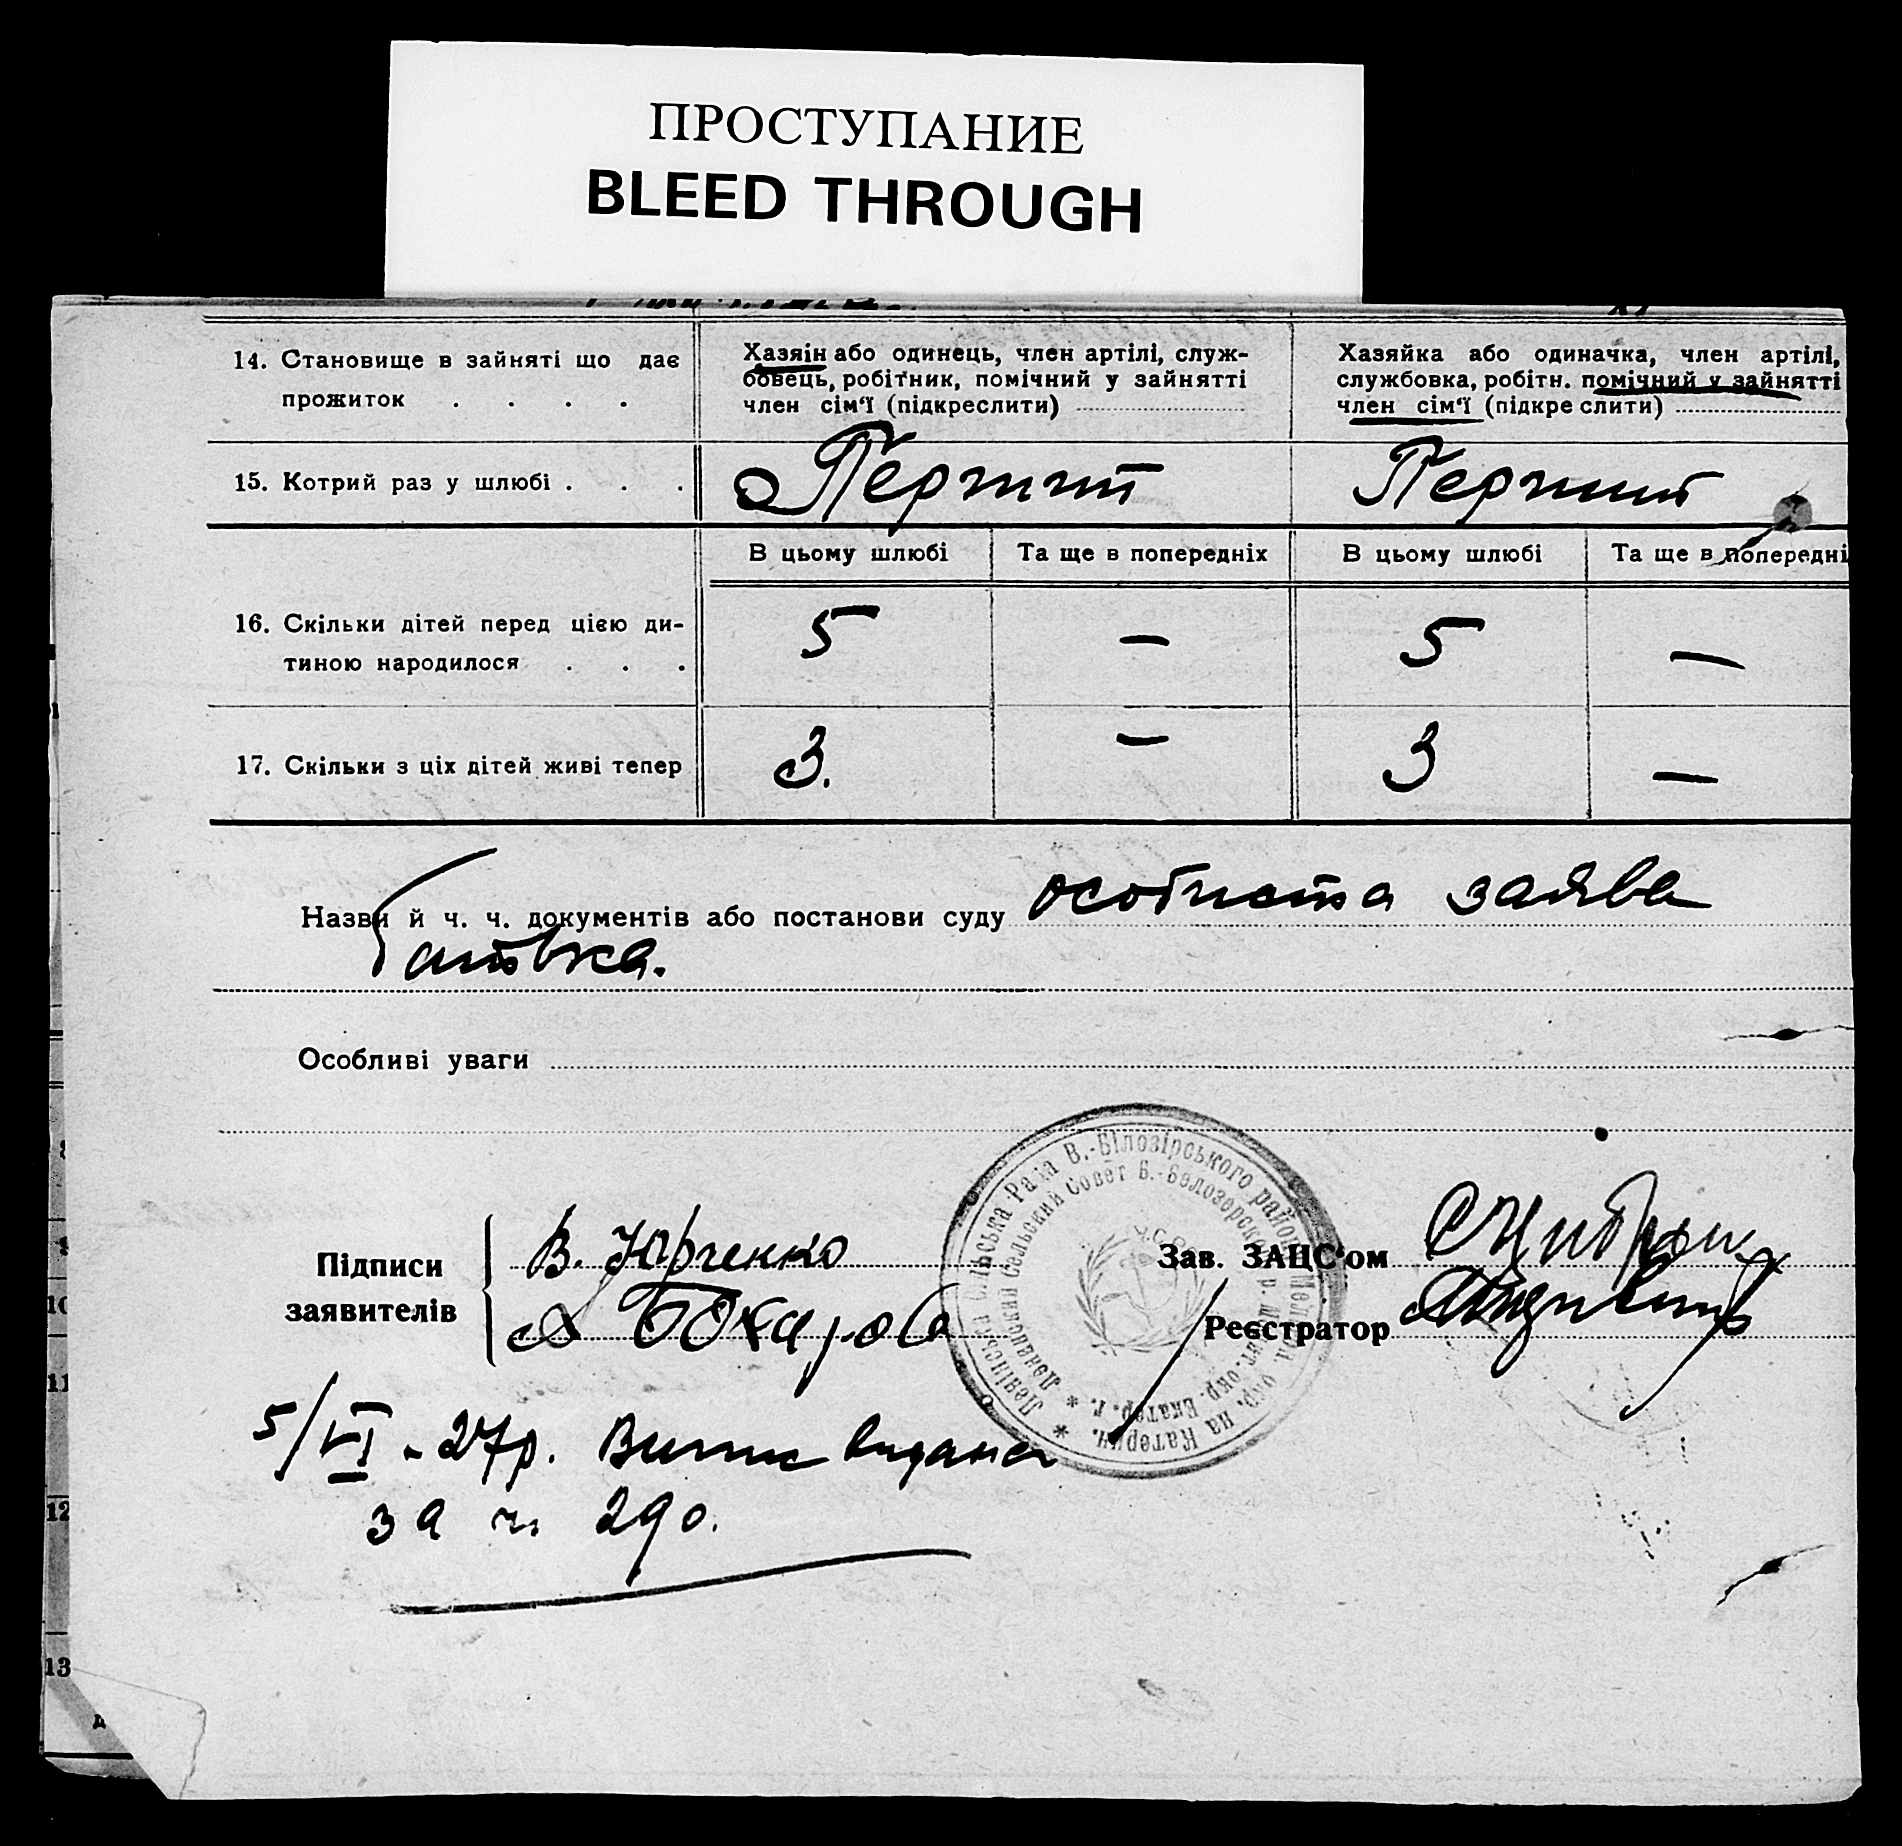 ПРОСТУПАНИЕ
BLEED THROUGH
14. Становище в зайняті що дає
прожиток . . . .
Хазяін або одинець, член артілі, служ-
бовець, робітник, помічний у зайнятті
член сім'ї (підкреслити)
Хазяйка або одиначка, член артілі,
службовка, робітн. помічний у зайнятті
член сім'ї (підкреслити)
15. Котрий раз у шлюбі . . .
Первий
Первий
В цьому шлюбі
Та ще в попередніх
В цьому шлюбі
Та ще в попередні
16. Скільки дітей перед цією ди-
тиною народилося . . .
5 — 5 —
17. Скільки з ціх дітей живі тепер
3. — 3 —
Назви й ч. ч. документів або постанови суду особиста заява
батька.
Особливі уваги
Ленінська Сільська Рада В.-Білозірського району Мелітоп. окр. на Катерин.
Ленинский Сельский Совет Б.-Белозерск. р. Мелит. окр. Екатер. г.
У.С.
Підписи
заявителів
В. Юрченко
Бохаров
Зав. ЗАЦС'ом
Реєстратор
5/VI - 27р. Витяг видана
за ч. 290.
8
9
10
11
12
13